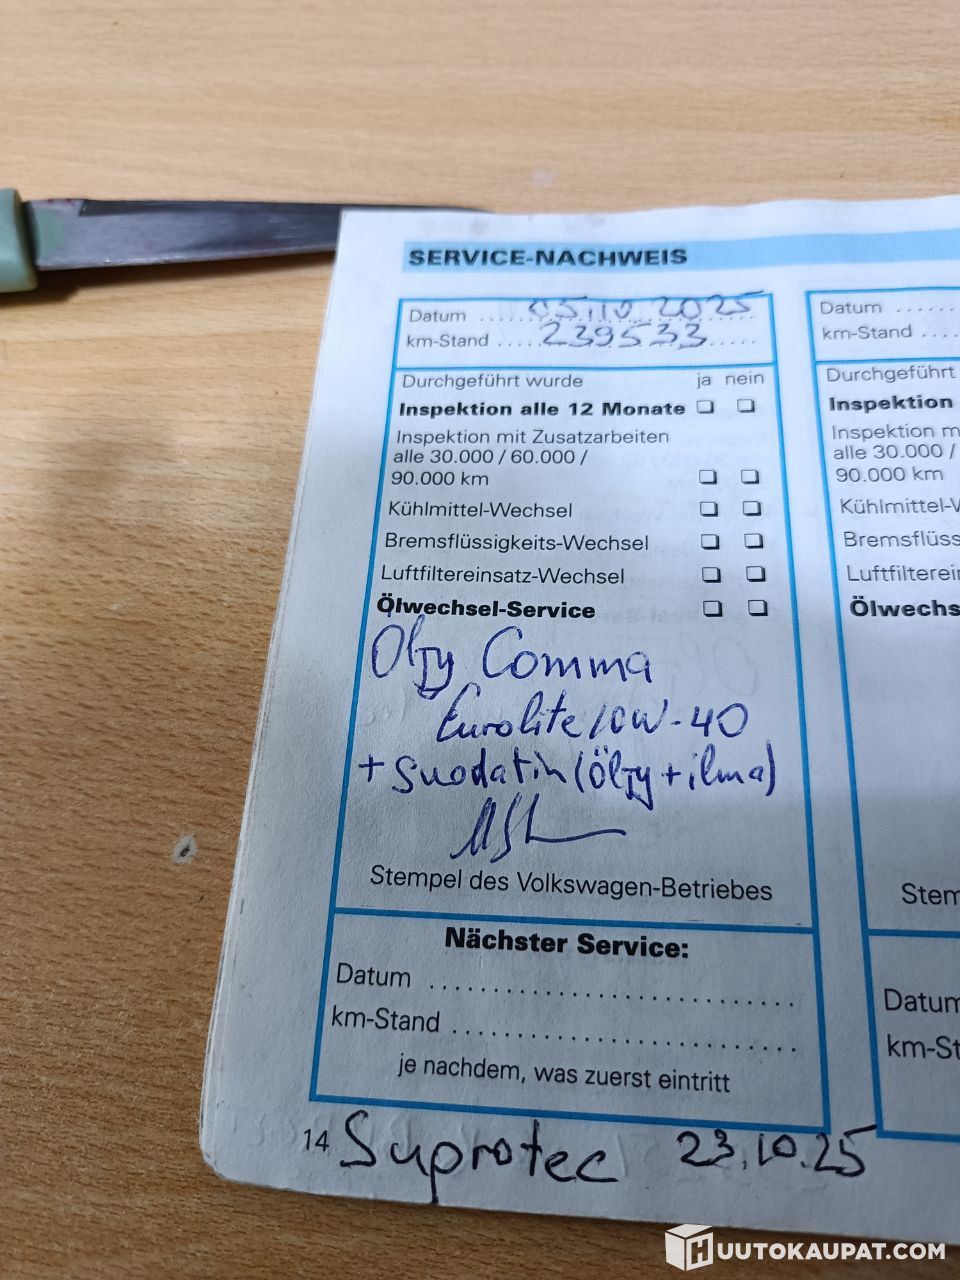 SERVICE-NACHWEIS
Datum 05.10.2025
km-Stand 239533
Durchgeführt wurde ja nein
Inspektion alle 12 Monate
Inspektion mit Zusatzarbeiten
alle 30.000 / 60.000 /
90.000 km
Kühlmittel-Wechsel
Bremsflüssigkeits-Wechsel
Luftfiltereinsatz-Wechsel
Ölwechsel-Service
Öljy Comma
Eurolite 10W-40
+ Suodatin (Öljy + ilma)
Stempel des Volkswagen-Betriebes
Nächster Service:
Datum
km-Stand
je nachdem, was zuerst eintritt
14 Suprotec 23.10.25
Datum
km-Stand
Durchgeführt
Inspektion
Inspektion m
alle 30.000 /
90.000 km
Kühlmittel-W
Bremsflüss
Luftfilterein
Ölwechs
Stem
Datum
km-St
HUUTOKAUPAT.COM